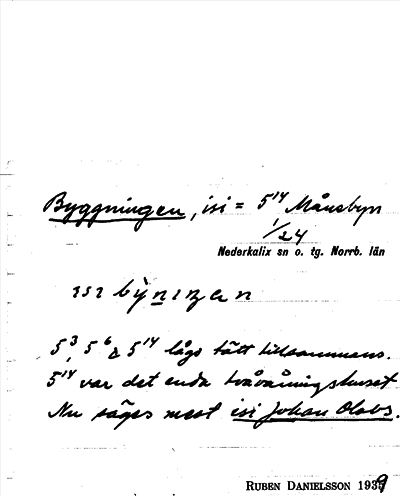 Byggningen, isi = 5¹⁴ Månsbyn
1/24
Nederkalix sn o. tg. Norrb. län
ısı býnıŋen
5³, 5⁶ & 5¹⁴ lågo tätt tillsammans.
5¹⁴ var det enda tvåvåningshuset
Nu säges mest isi Johan Olabs.
RUBEN DANIELSSON 1939